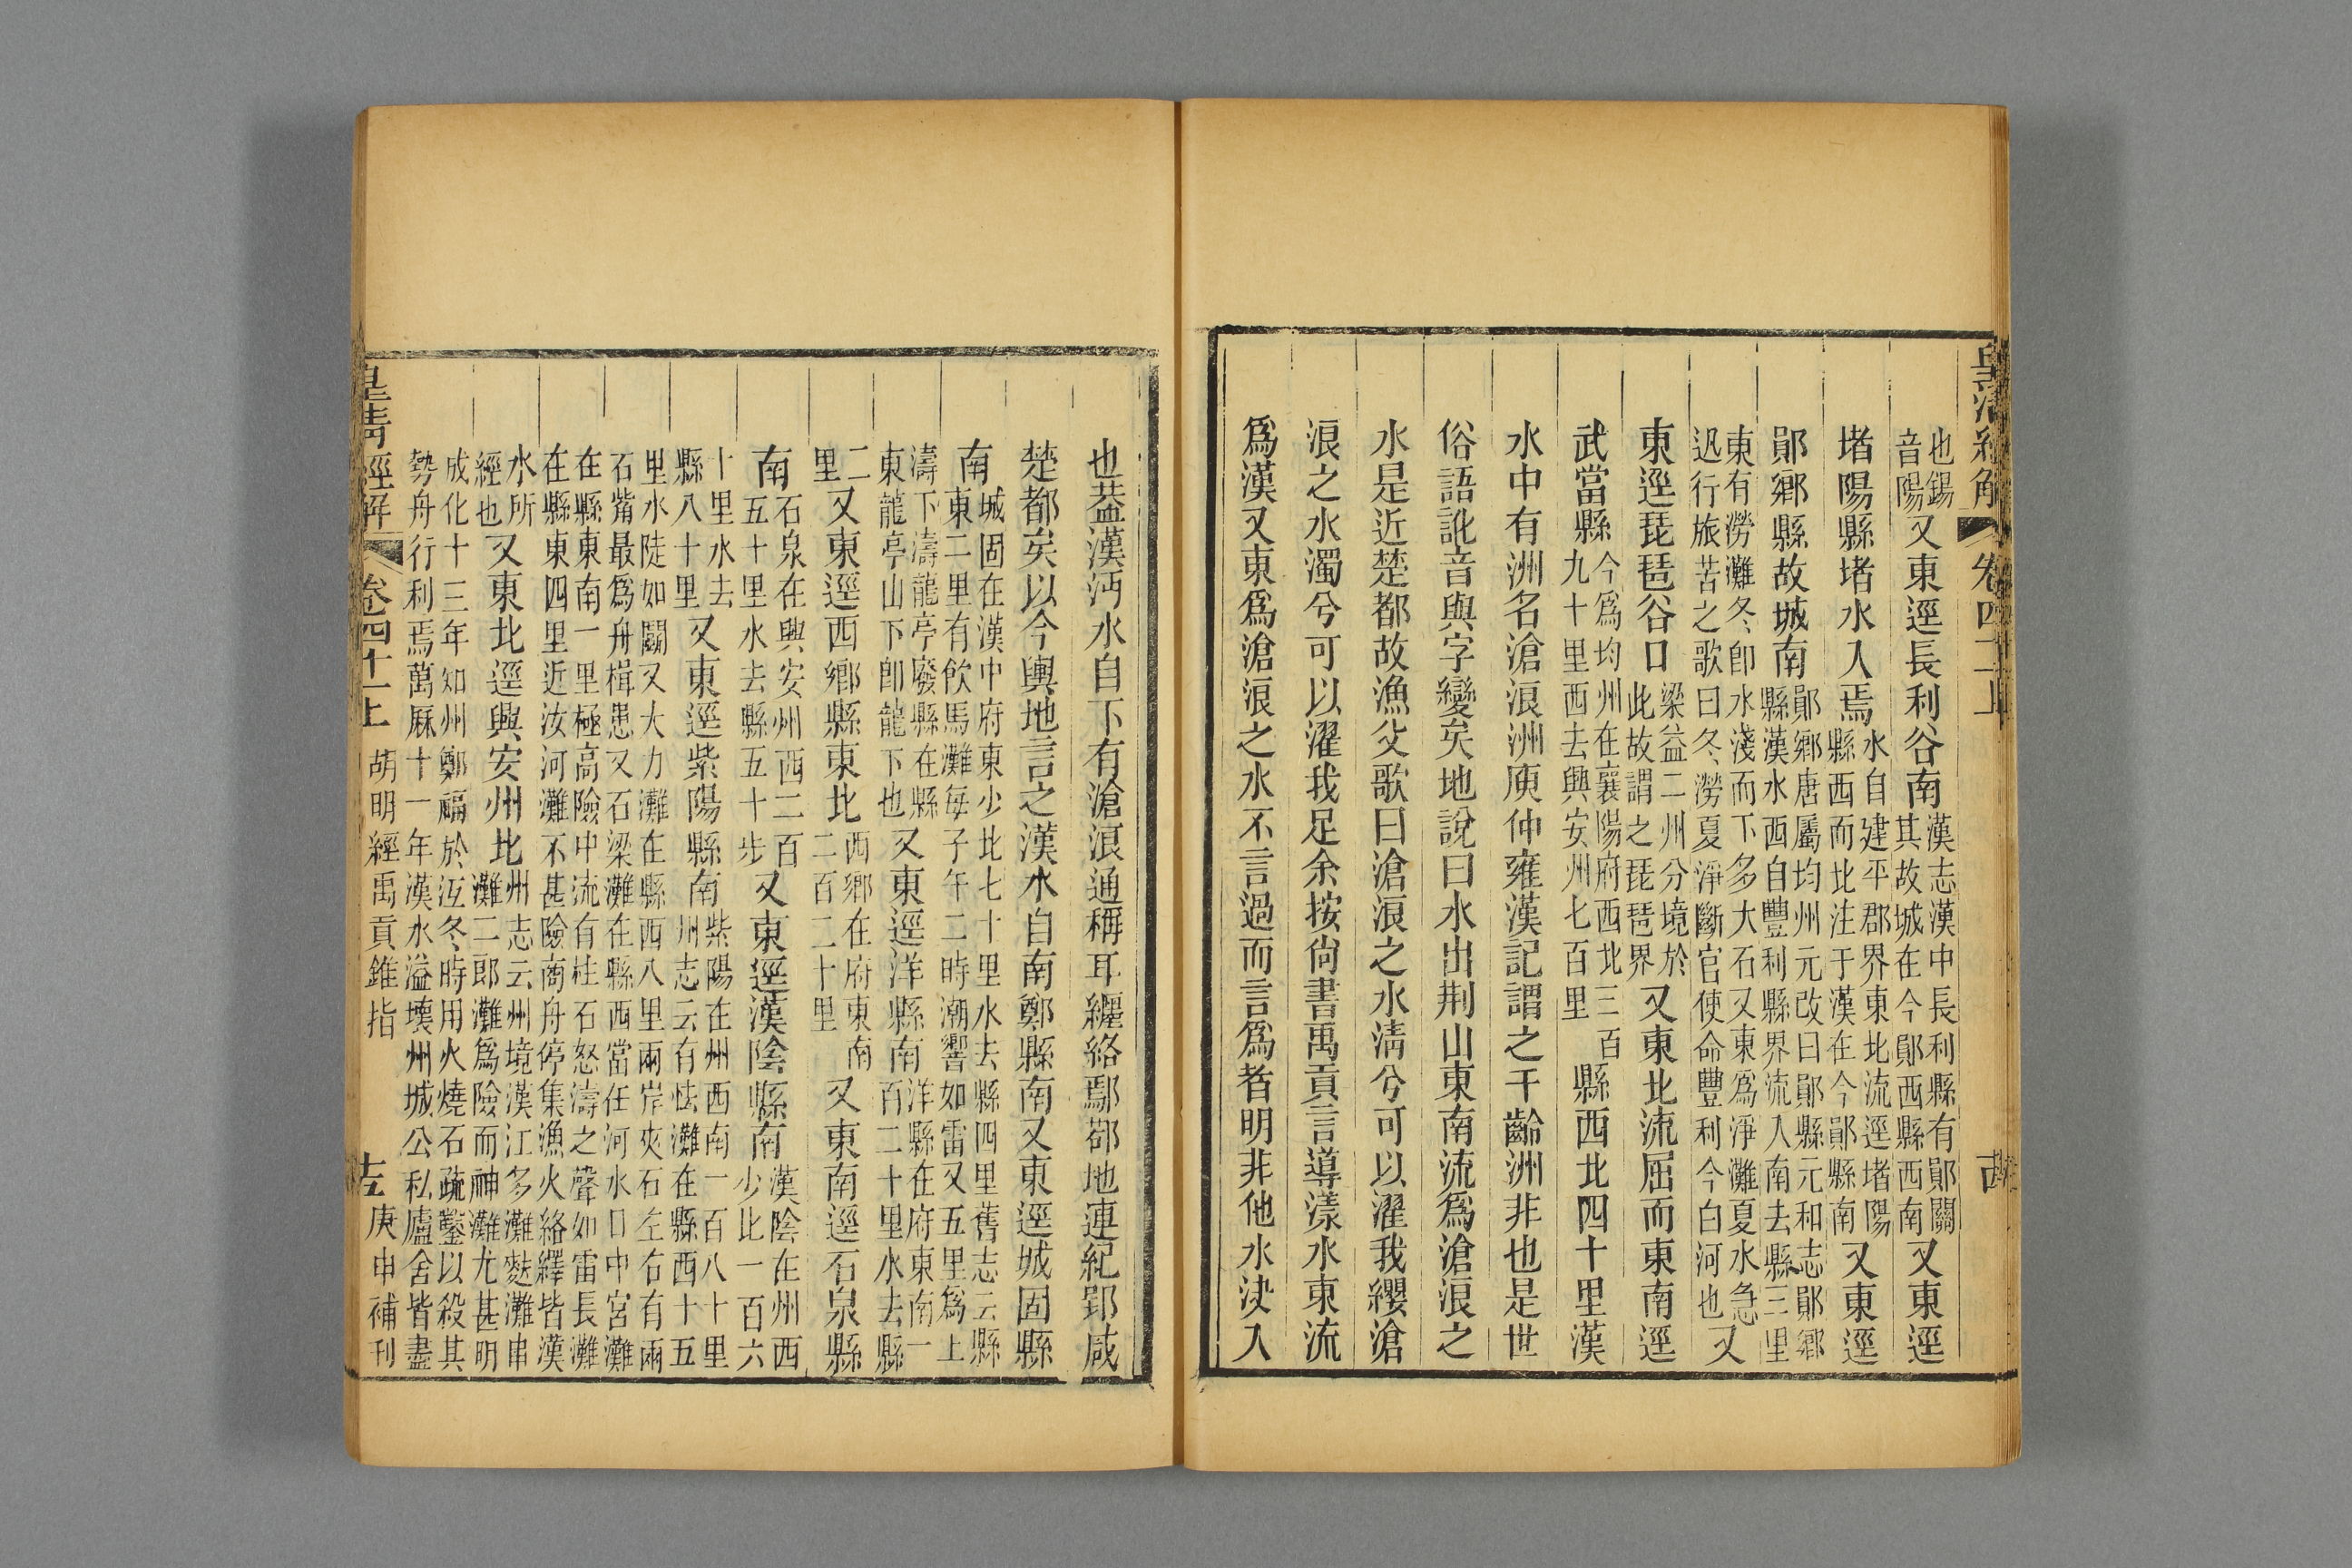 皇清經解 卷四十一上
也錫音陽又東逕長利谷南漢志漢中長利縣有鄖關其故城在今鄖西縣西南又東逕
堵陽縣堵水入焉水自建平郡界東北流逕堵陽縣西而北注于漢在今鄖縣南又東逕
鄖鄉縣故城南鄖鄉唐屬均州元改曰鄖縣元和志鄖鄉縣漢水西自豐利縣界流入南去縣三里
東有澇灘冬卽水淺而下多大石又東爲淨灘夏水急迅行旅苦之歌曰冬澇夏淨斷官使命豐利今白河也又
東逕琵琶谷口梁益二州分境於此故謂之琵琶界又東北流屈而東南逕
武當縣今爲均州在襄陽府西北三百九十里西去興安州七百里縣西北四十里漢
水中有洲名滄浪洲庾仲雍漢記謂之千齡洲非也是世
俗語訛音與字變矣地說曰水出荆山東南流爲滄浪之
水是近楚都故漁父歌曰滄浪之水淸兮可以濯我纓滄
浪之水濁兮可以濯我足余按尙書禹貢言導漾水東流
爲漢又東爲滄浪之水不言過而言爲者明非他水決入
也葢漢沔水自下有滄浪通稱耳纏絡鄢鄀地連紀郢咸
楚都矣以今輿地言之漢水自南鄭縣南又東逕城固縣
南城固在漢中府東少北七十里水去縣四里舊志云縣東二里有飲馬灘每子午二時潮響如雷又五里爲上
濤下濤龍亭廢縣在縣東龍亭山下卽龍下也又東逕洋縣南洋縣在府東南一百二十里水去縣
二里又東逕西鄉縣東北西鄉在府東南二百二十里又東南逕石泉縣
南石泉在興安州西二百五十里水去縣五十步又東逕漢陰縣南漢陰在州西少北一百六
十里水去縣八十里又東逕紫陽縣南紫陽在州西南一百八十里州志云有怯灘在縣西十五
里水陡如闞又大力灘在縣西八里兩岸夾石左右有兩石觜最爲舟楫患又石梁灘在縣西當任河水口中宮灘
在縣東南一里極高險中流有柱石怒濤之聲如雷長灘在縣東四里近汝河灘不甚險商舟停集漁火絡繹皆漢
水所經也又東北逕興安州北州志云州境漢江多灘灘串灘二郎灘爲險而神灘尤甚明
成化十三年知州鄭福於冱冬時用火燒石疏鑿以殺其勢舟行利焉萬厤十一年漢水溢壞州城公私廬舍皆盡
皇清經解 卷四十一上 胡明經禹貢錐指 庚申補刊